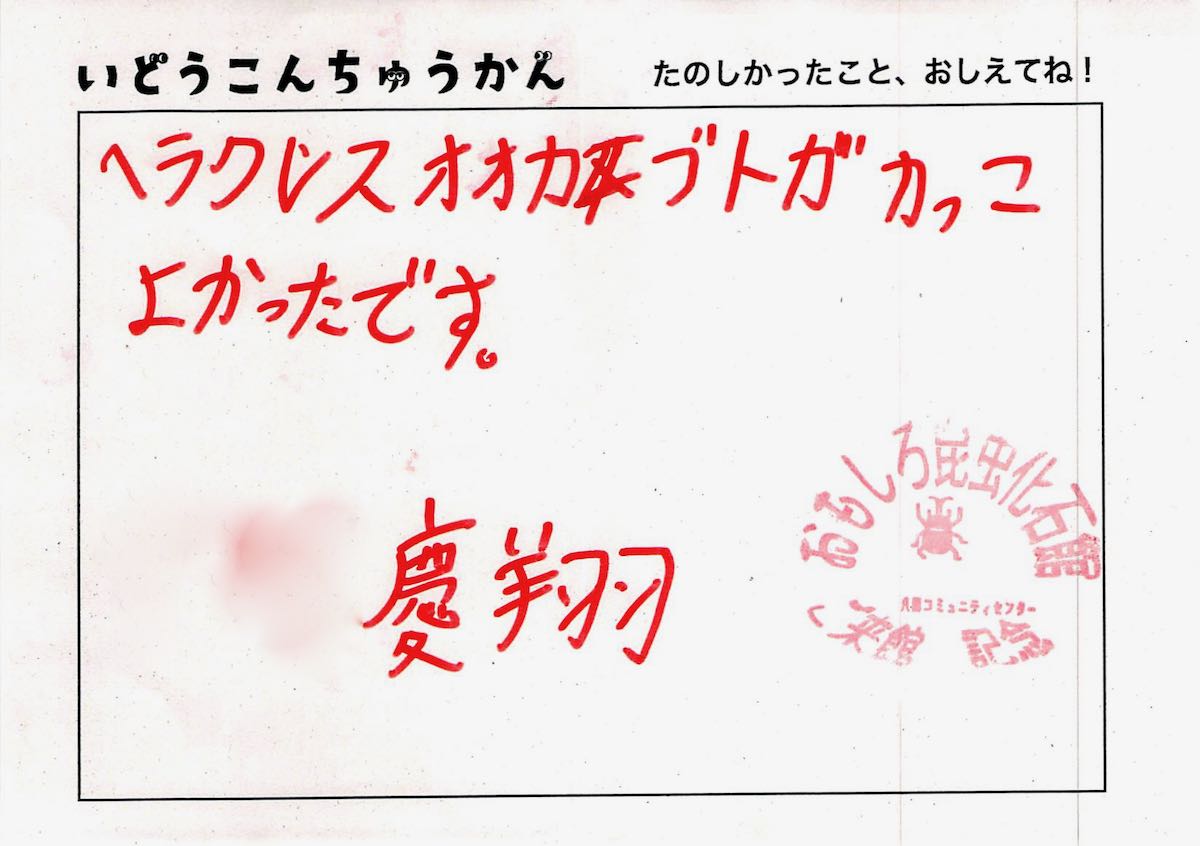 いどうこんちゅうかん
たのしかったこと、おしえてね！
ヘラクレスオオカブトガかっこ
よかったです。
慶翔
おもしろ昆虫化石館
コミュニティセンター
ご来館 記念